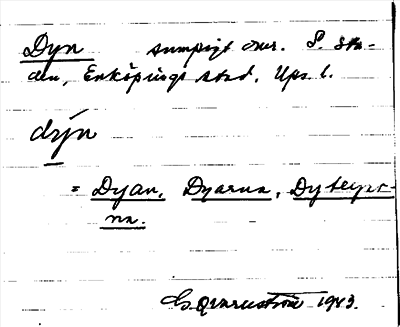 Dyn sumpigt omr. S. sta-
den, Enköpings stad, Ups. l.
dyn
= Dyan, Dyarna, Dyteger-
na.
G. Qvarnström 1943.